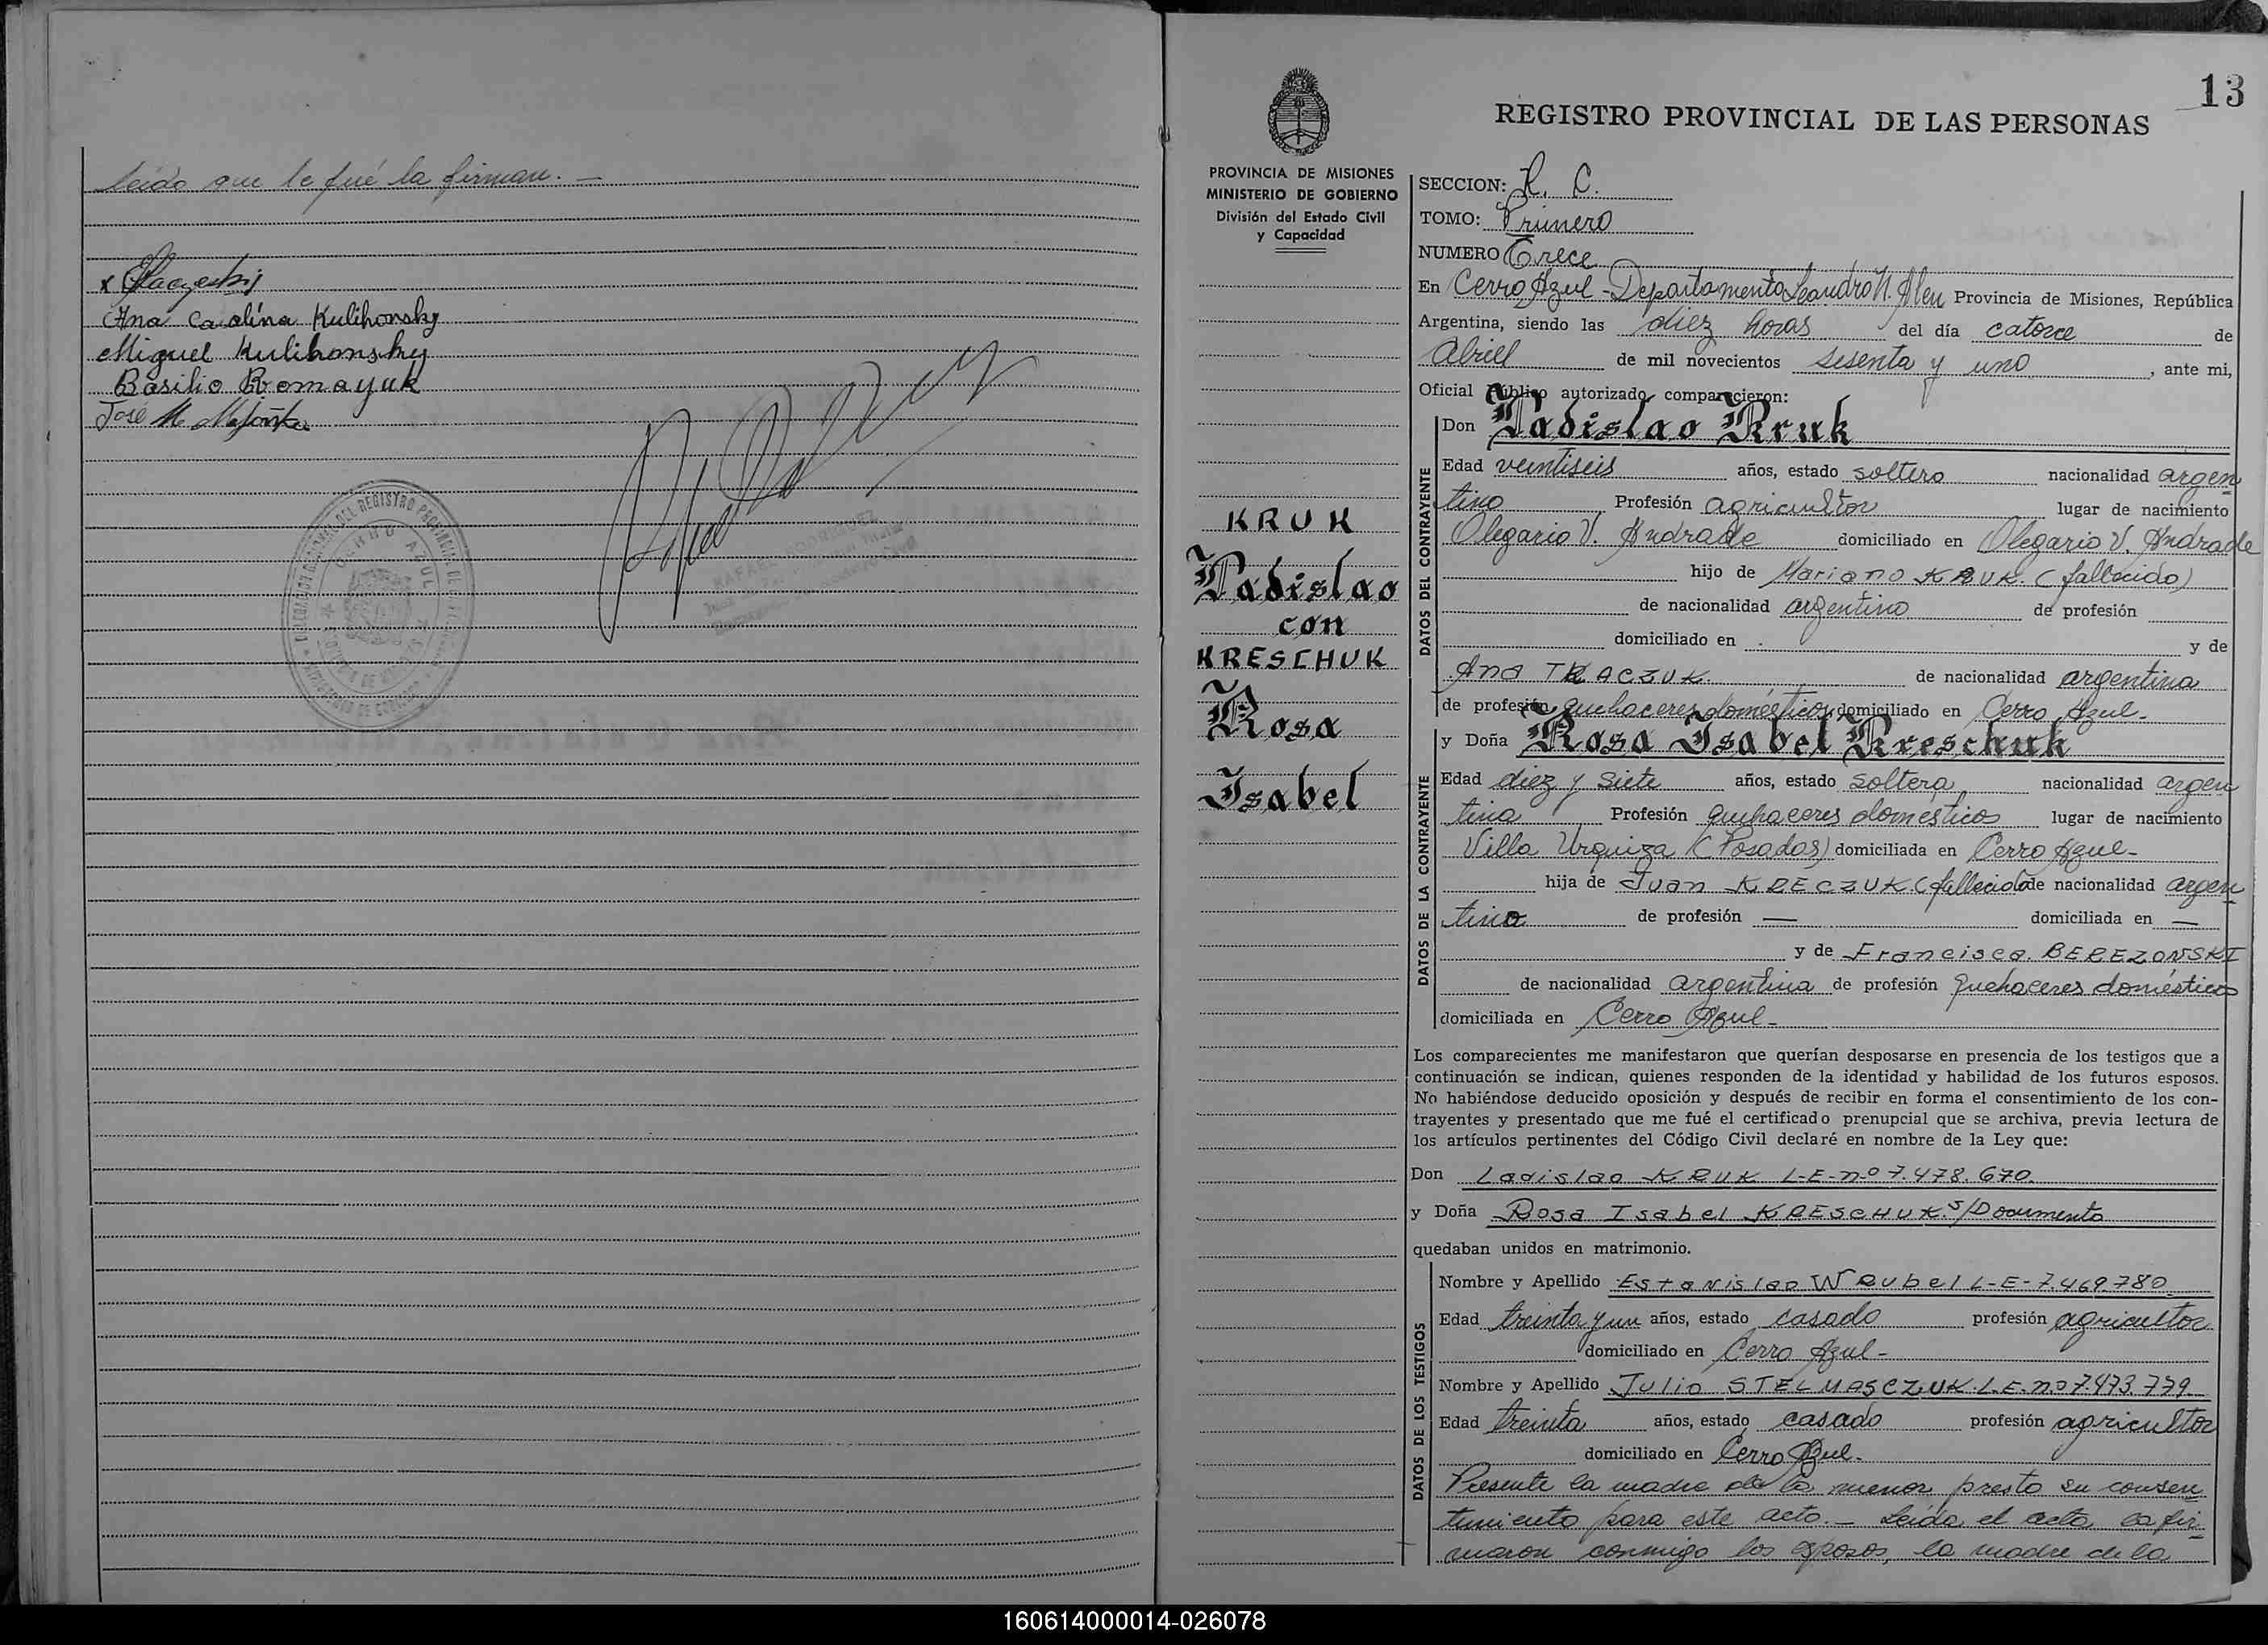 leído que le fué la firman. —
Ana Carolina Kulihonsky
Miguel Kulihonsky
Basilio Romayuk
José M
CERRO AZUL
13
REGISTRO PROVINCIAL DE LAS PERSONAS
PROVINCIA DE MISIONES
MINISTERIO DE GOBIERNO
División del Estado Civil
y Capacidad
KRUK
Ladislao
con
KRESCHUK
Rosa
Isabel
SECCION: R. C.
TOMO: Primero
NUMERO Trece
En Cerro Azul - Departamento Leandro N. Alem Provincia de Misiones, República
Argentina, siendo las diez horas del día catorce de
Abril de mil novecientos sesenta y uno, ante mi,
Oficial Público autorizado comparecieron:
Don Ladislao Kruk
DATOS DEL CONTRAYENTE
Edad veintiseis años, estado soltero nacionalidad argen
tino Profesión agricultor lugar de nacimiento
Olegario V. Andrade domiciliado en Olegario V. Andrade
hijo de Mariano KRUK. (fallecido)
de nacionalidad argentino de profesión
domiciliado en y de
Ana TKACZUK de nacionalidad argentina
de profesión quehaceres domésticos domiciliado en Cerro Azul-
y Doña Rosa Isabel Kreschuk
DATOS DE LA CONTRAYENTE
Edad diez y siete años, estado soltera nacionalidad argen
tina Profesión quehaceres domésticos lugar de nacimiento
Villa Urquiza (Posadas) domiciliada en Cerro Azul-
hija de Juan KRECZUK (fallecido) de nacionalidad argen
tino de profesión — domiciliada en —
y de Francisca BEREZONSKI
de nacionalidad argentina de profesión quehaceres domésticos
domiciliada en Cerro Azul-
Los comparecientes me manifestaron que querían desposarse en presencia de los testigos que a
continuación se indican, quienes responden de la identidad y habilidad de los futuros esposos.
No habiéndose deducido oposición y después de recibir en forma el consentimiento de los con-
trayentes y presentado que me fué el certificado prenupcial que se archiva, previa lectura de
los artículos pertinentes del Código Civil declaré en nombre de la Ley que:
Don Ladislao KRUK L-E-nº 7.478.670.
y Doña Rosa Isabel KRESCHUK. s/Documento
quedaban unidos en matrimonio.
DATOS DE LOS TESTIGOS
Nombre y Apellido Estanislao WRubel L-E-7.469.780
Edad treinta y un años, estado casado profesión agricultor
domiciliado en Cerro Azul-
Nombre y Apellido Julio STELMASCZUK. L.E. nº 7.473.779
Edad treinta años, estado casado profesión agricultor
domiciliado en Cerro Azul-
Presente la madre de la menor presta su consen
timiento para este acto. - Leída el acta la fir
maron conmigo los esposos, la madre de la
160614000014-026078